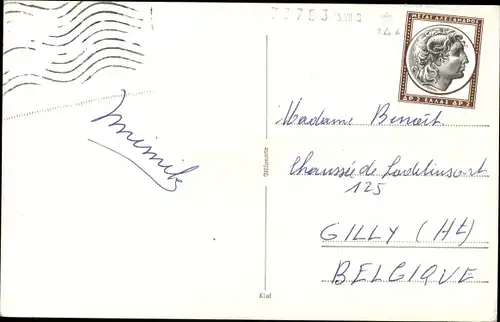 ΜΕΓΑΣ ΑΛΕΞΑΝΔΡΟΣ
ΔΡ 2 ΕΛΛΑΣ ΔΡ 2
Madame Benoît
Chaussée de Lodelinsart
125
GILLY (Ht)
BELGIQUE
Kiel